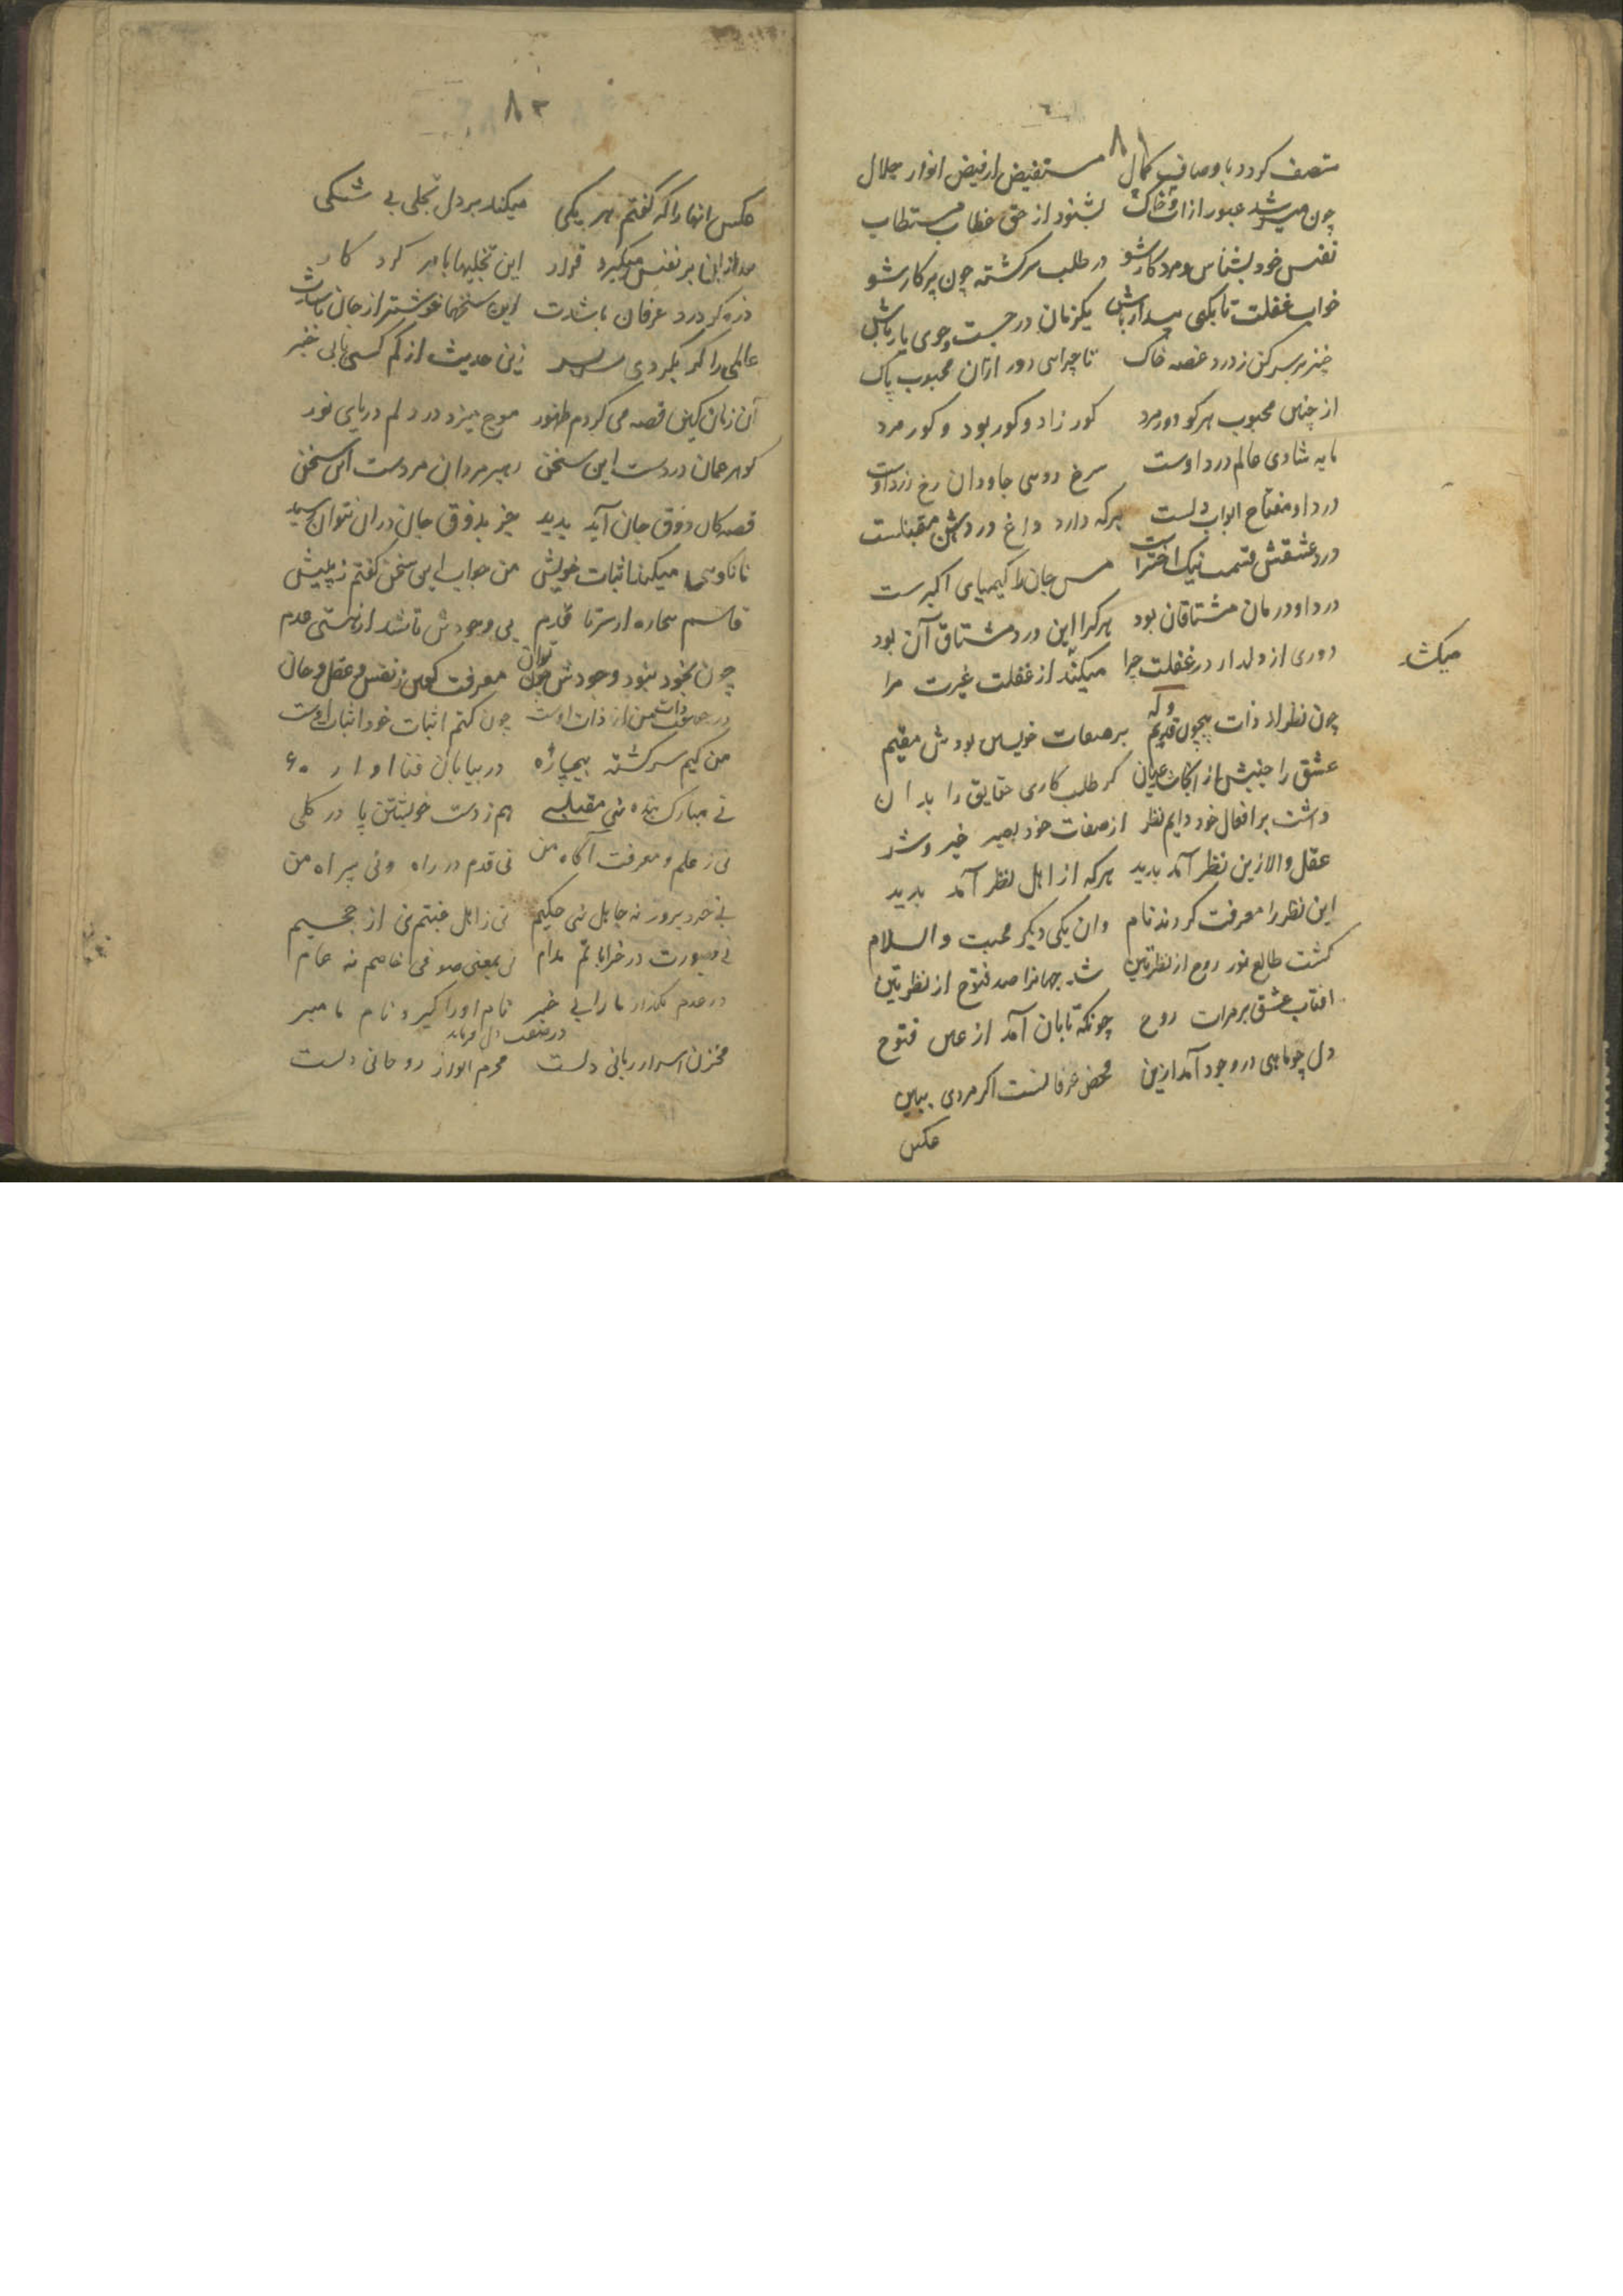 ٨١
متصف کردد باوصاف کمال مستفیض از فیض انوار جلال
چون میرشد عبور از آب و خاک بشنود از حق خطاب مستطاب
نفس خود بشناس و مرد کار شو در طلب سرکشته چون پرکار شو
خواب غفلت تا بکی بیدار باش یکزمان در جست و جوی یار باش
خیز بر سر کن ز درد غصه خاک تا چرایی دور ازان محبوب پاک
از چنین محبوب هرکو دور مرد کور زاد و کور بود و کور مرد
مایه شادی عالم درد اوست سرخ روی جاودان رخ زرد اوست
درد او مفتاح ابواب دلست هرکه دارد داغ دردش مقبلست
درد عشقش قسمت نیک اخترست مس جان را کیمیای اکبرست
درد او درمان مشتاقان بود هرکرا این درد مشتاق آن بود
دوری از دلدار در غفلت چرا میکند از غفلت غیرت مرا
میکشد
چون نظر از ذات بیچون قدیم بر صفات خویش بودش مقیم
عشق را جنبش از عیان کر طلب کاری حقایق را بدان
داشت بر افعال خود دایم نظر از صفات خود بصیر خیر و شر
عقل والا زین نظر آمد بدید هرکه از اهل نظر آمد بدید
این نظر را معرفت کردند نام وان یکی دیکر محبت والسلام
کشت طالع نور روح از نظرتین شد جهانرا صد فتوح از نظرتین
افتاب عشق بر مرات روح چونکه تابان آمد از عین فتوح
دل چو ماهی در وجود آمد ازین محض عرفانست اکر مردی ببین
عکس
٨٢
عکس انها را که کفتم هر یکی میکند بر دل تجلی بی شکی
بعد ازان بر نفس میکیرد قرار این تجلیها بامر کردکار
ذره کر درد عرفان باشدت این سخنها خوشتر از جان باشدت
عالمی را کر بکردی سر بسر زین حدیث از کم کسی یابی خبر
آن زمان کین قصه می کردم ظهور موج میزد در دلم دریای نور
کوهر عمان دردست این سخن رهبر مردان مردست این سخن
قصه کان ذوق جان آید بدید جز بذوق جان دران نتوان رسید
تا نکویی میکند اثبات خویش من جواب این سخن کفتم ز پیش
قاسم بیچاره از سر تا قدم بی وجودش تا شد از هستی عدم
چون بخود نبود وجودش چون توان معرفت کفتن ز نفس و عقل و جان
در حقیقت ذات من از ذات اوست چون کنم اثبات خود اثبات اوست
من کیم سرکشته بیچاره در بیابان فنا اواره
نی مبارک بنده نی مقبلی هم ز دست خویشتن پا در کلی
نی ز علم و معرفت آکاه من نی قدم در راه و نی بیراه من
نی خرد پرور نه جاهل نی حکیم نی ز اهل جنتم نی از جحیم
نی بصورت در خراباتم مدام نی بمعنی صوفی خاصم نه عام
در عدم بکذار ما را بی خبر نام او را کیر و نام ما مبر
در صفت دل فرماید
مخزن اسرار ربانی دلست محرم انوار روحانی دلست